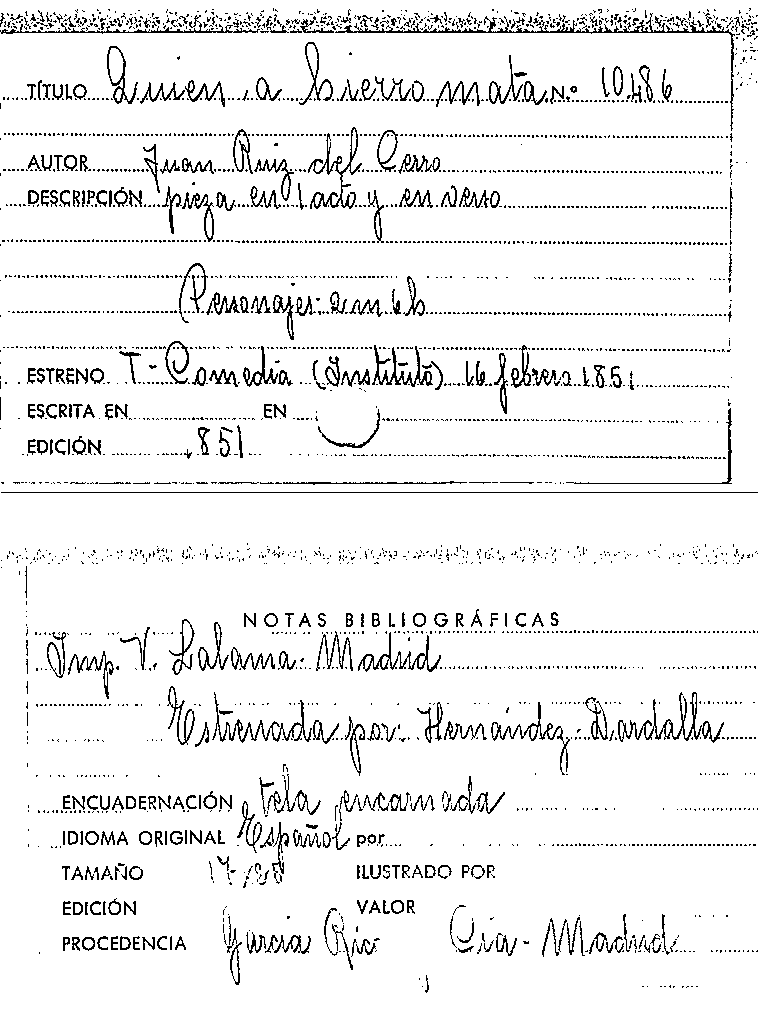 TÍTULO Quien a hierro mata N.º 10.486
AUTOR Juan Ruiz del Cerro
DESCRIPCIÓN pieza en 1 acto y en verso
Personajes- 2 m 6 h
ESTRENO T- Comedia (Instituto) 16 febrero 1851
ESCRITA EN EN
EDICIÓN 851
NOTAS BIBLIOGRÁFICAS
Imp. V. Lalama- Madrid
Estrenada por:- Hernández- Dardalla
ENCUADERNACIÓN tela encarnada
IDIOMA ORIGINAL Español por
TAMAÑO ILUSTRADO POR
EDICIÓN VALOR
PROCEDENCIA García Rico Cía- Madrid